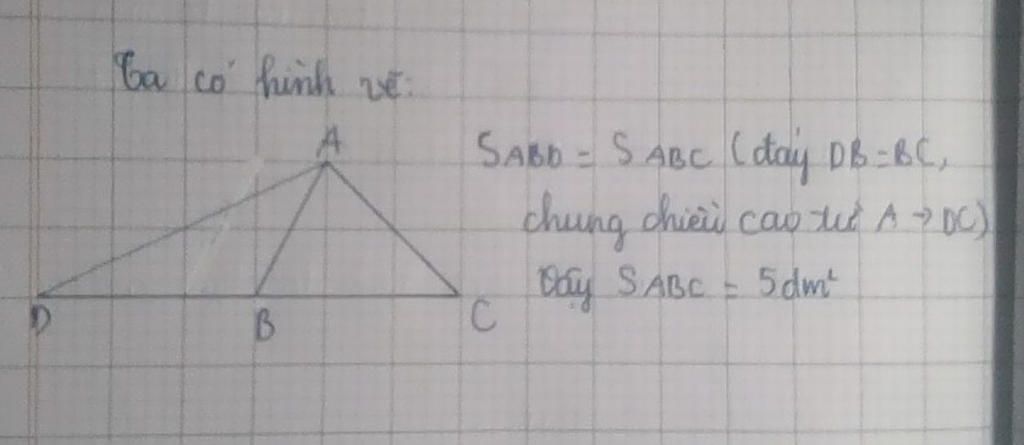 Ta có hình vẽ:
A
SABD = SABC (đáy DB=BC,
chung chiều cao từ A → DC)
Vậy SABC = 5dm²
D B C